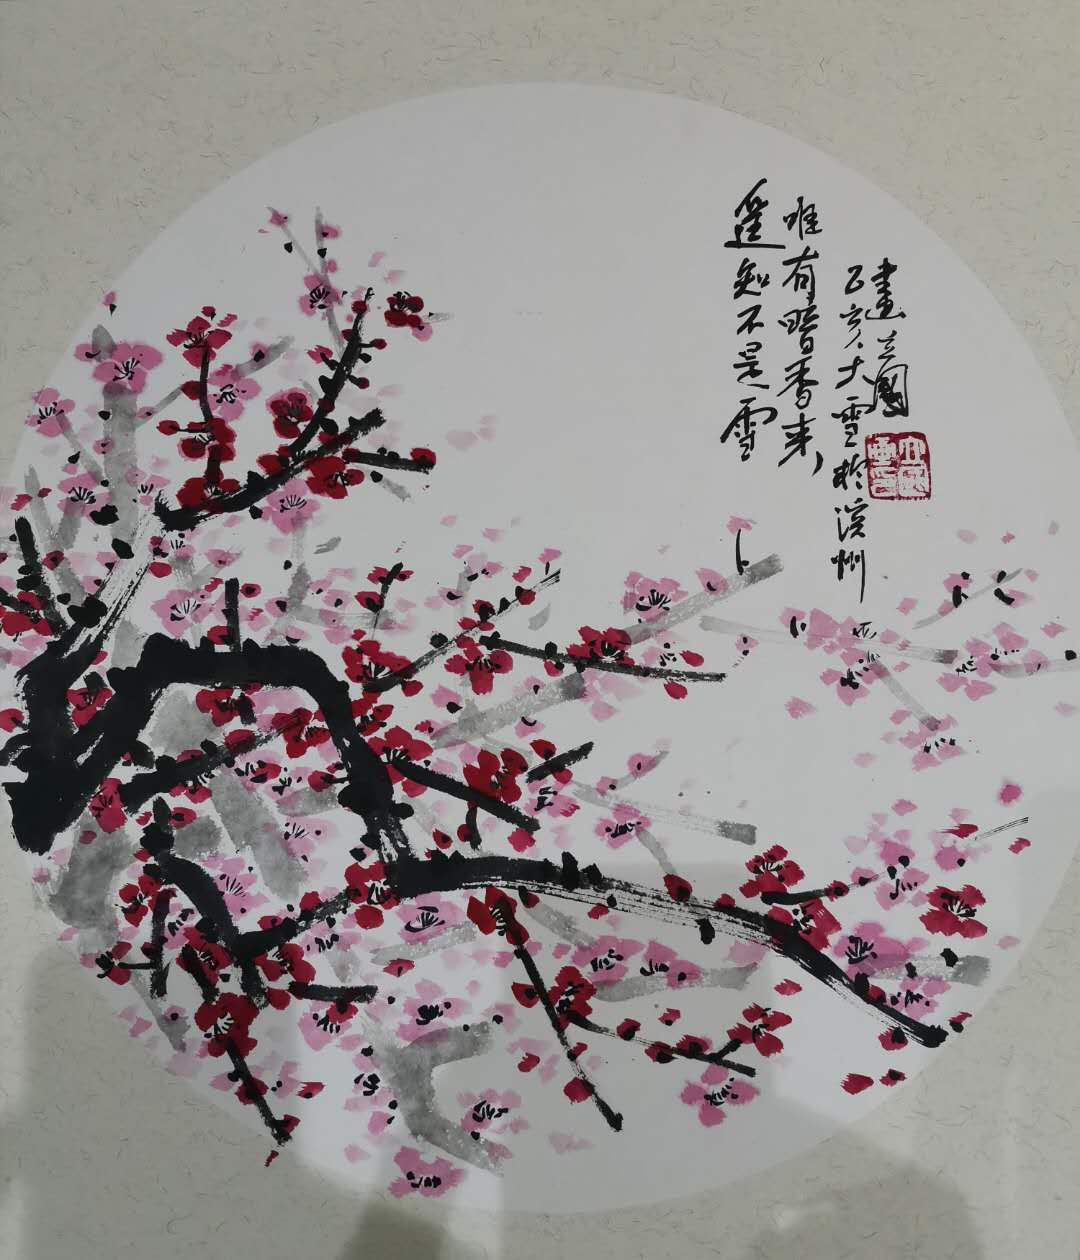 遥知不是雪
唯有暗香来
己亥大雪於滨州
畫立國